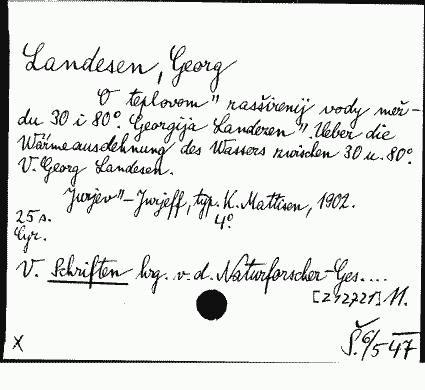 Landesen, Georg
O teplovom" rasširenij vody mež-
du 30 i 80°. Georgija Landezen". Ueber die
Wärmeausdehnung des Wassers zwischen 30 u. 80°.
V. Georg Landesen.
Jurjev"-Jurjeff, typ. K. Mattisen, 1902.
25 s. 4°
Cyr.
V. Schriften hrg. v. d. Naturforscher-Ges....
[242721] 11.
X Š. 6/5 47